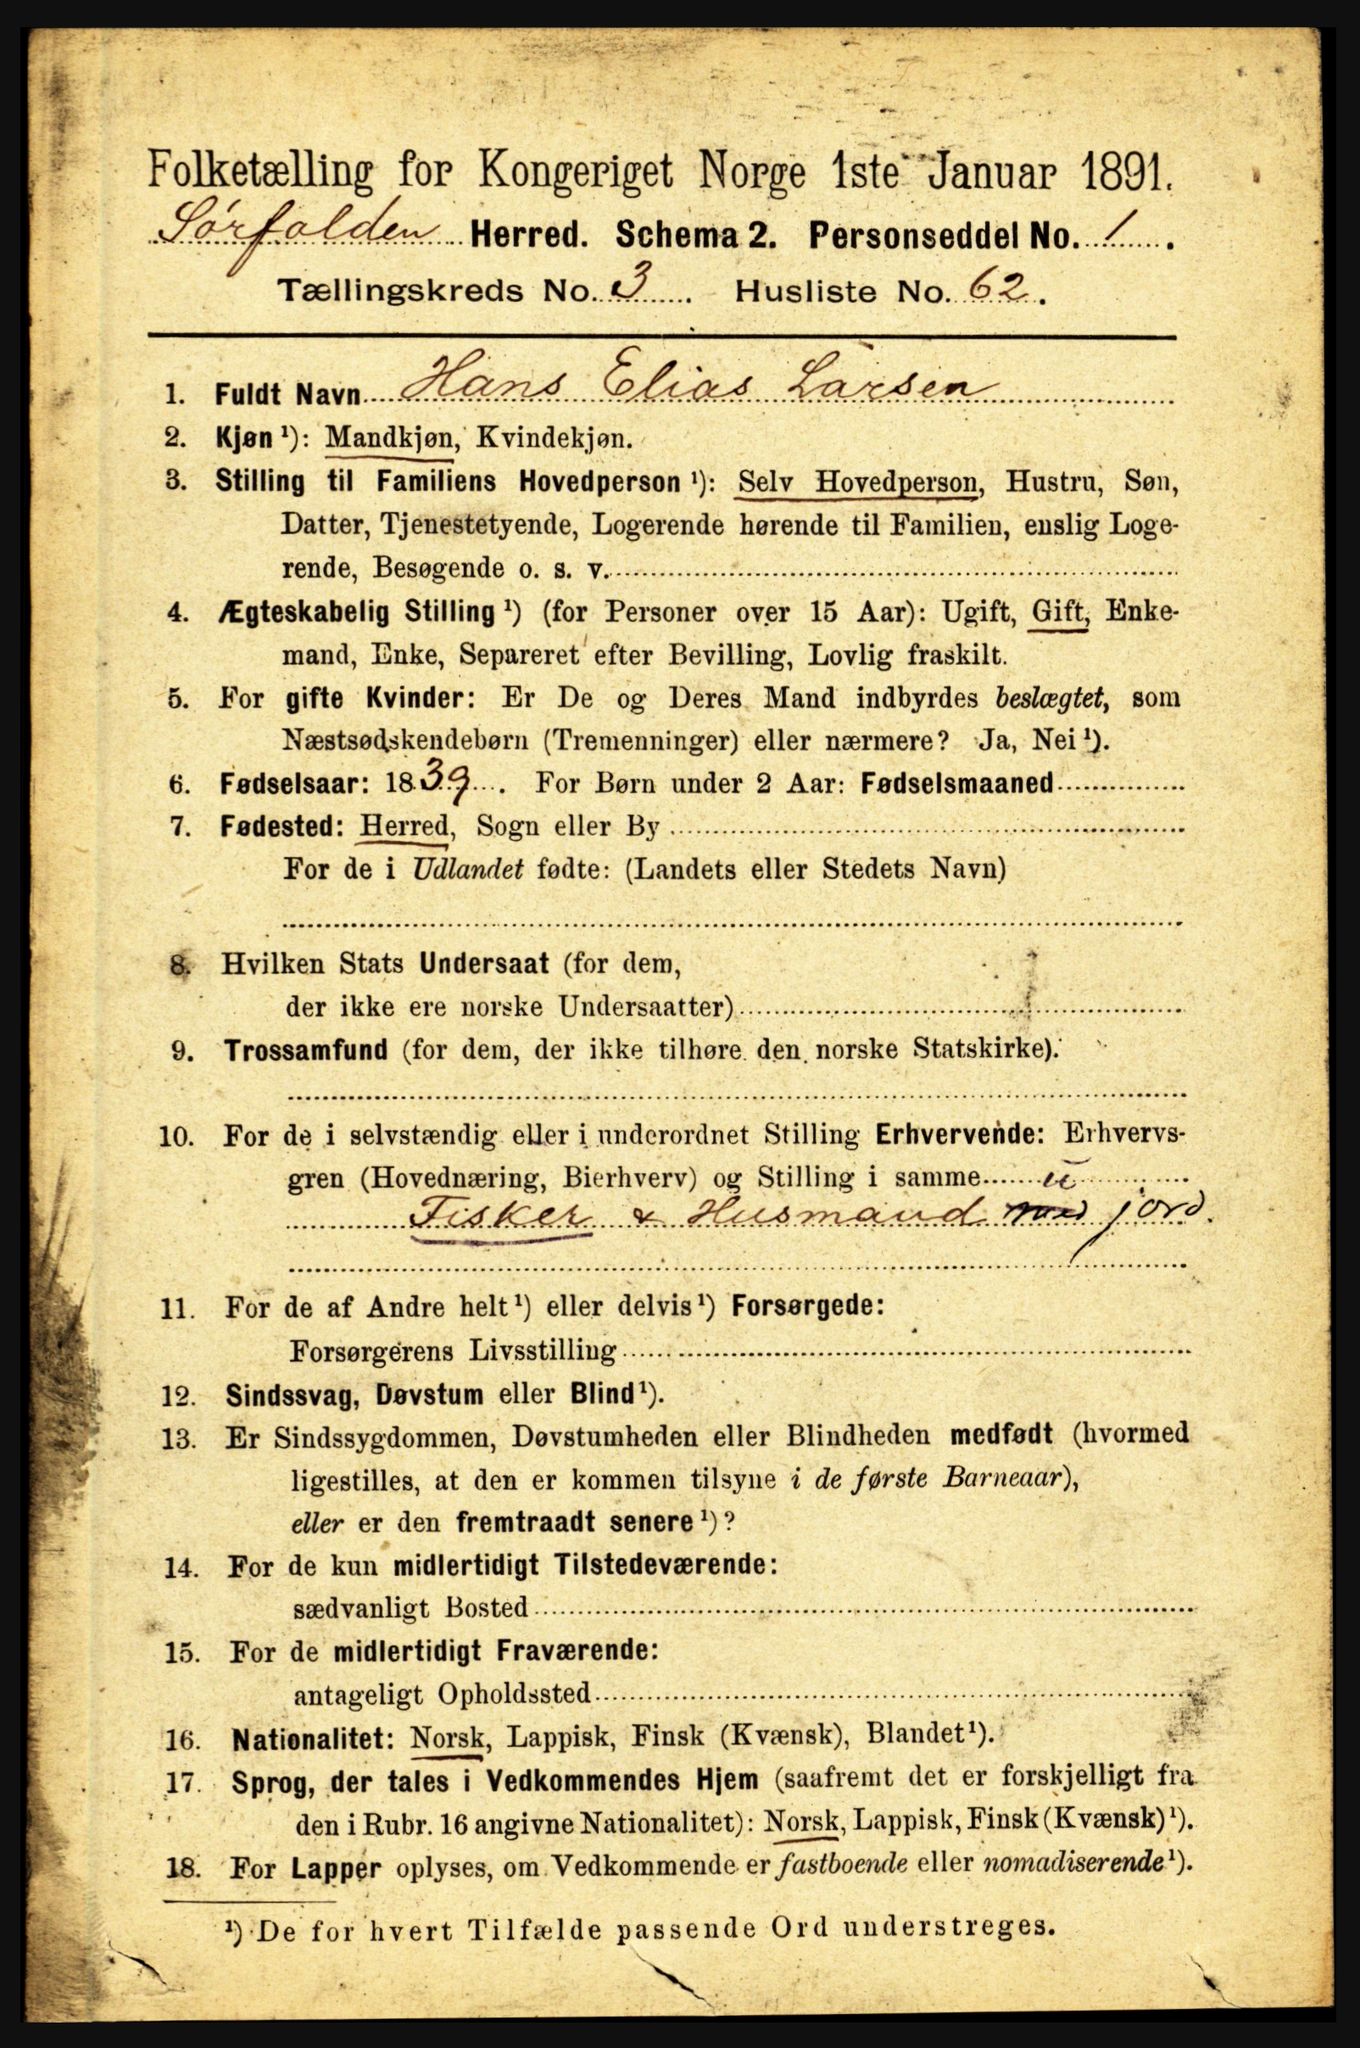 Folketælling for Kongeriget Norge 1ste Januar 1891.
Sørfolden Herred. Schema 2. Personseddel No. 1.
Tællingskreds No. 3. Husliste No. 62.
1. Fuldt Navn Hans Elias Larsen
2. Kjøn¹): Mandkjøn, Kvindekjøn.
3. Stilling til Familiens Hovedperson¹): Selv Hovedperson, Hustru, Søn,
Datter, Tjenestetyende, Logerende hørende til Familien, enslig Loge-
rende, Besøgende o. s. v.
4. Ægteskabelig Stilling¹) (for Personer over 15 Aar): Ugift, Gift, Enke-
mand, Enke, Separeret efter Bevilling, Lovlig fraskilt.
5. For gifte Kvinder: Er De og Deres Mand indbyrdes beslægtet, som
Næstsødskendebørn (Tremenninger) eller nærmere? Ja, Nei¹).
6. Fødselsaar: 1839. For Børn under 2 Aar: Fødselsmaaned
7. Fødested: Herred, Sogn eller By
For de i Udlandet fødte: (Landets eller Stedets Navn)
8. Hvilken Stats Undersaat (for dem,
der ikke ere norske Undersaatter)
9. Trossamfund (for dem, der ikke tilhøre den norske Statskirke).
10. For de i selvstændig eller i underordnet Stilling Erhvervende: Erhvervs-
gren (Hovednæring, Bierhverv) og Stilling i samme u
Fisker & Husmand med jord.
11. For de af Andre helt¹) eller delvis¹) Forsørgede:
Forsørgerens Livsstilling
12. Sindssvag, Døvstum eller Blind¹).
13. Er Sindssygdommen, Døvstumheden eller Blindheden medfødt (hvormed
ligestilles, at den er kommen tilsyne i de første Barneaar),
eller er den fremtraadt senere¹)?
14. For de kun midlertidigt Tilstedeværende:
sædvanligt Bosted
15. For de midlertidigt Fraværende:
antageligt Opholdssted
16. Nationalitet: Norsk, Lappisk, Finsk (Kvænsk), Blandet¹).
17. Sprog, der tales i Vedkommendes Hjem (saafremt det er forskjelligt fra
den i Rubr. 16 angivne Nationalitet): Norsk, Lappisk, Finsk (Kvænsk)¹).
18. For Lapper oplyses, om Vedkommende er fastboende eller nomadiserende¹).
¹) De for hvert Tilfælde passende Ord understreges.